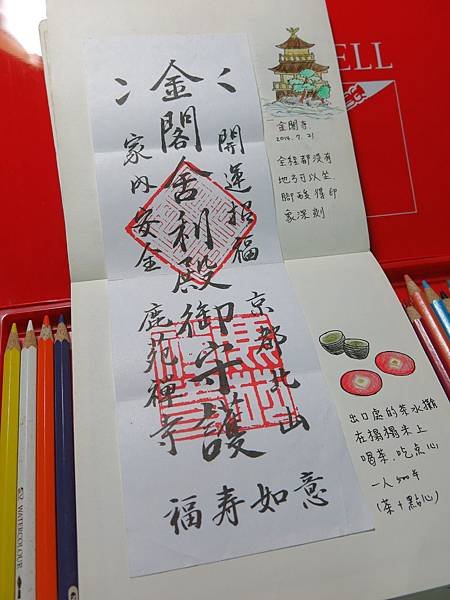 開運招福
京都北山
金閣舎利殿御守護
家内安全
鹿苑禅寺
福寿如意
ELL
金閣寺
2014.7.21
全程都沒有
地方可以坐
腳酸得印
象深刻
出口處的茶水攤
在榻榻米上
喝茶、吃点心
一人500円
(茶+點心)
WATERCOLOUR